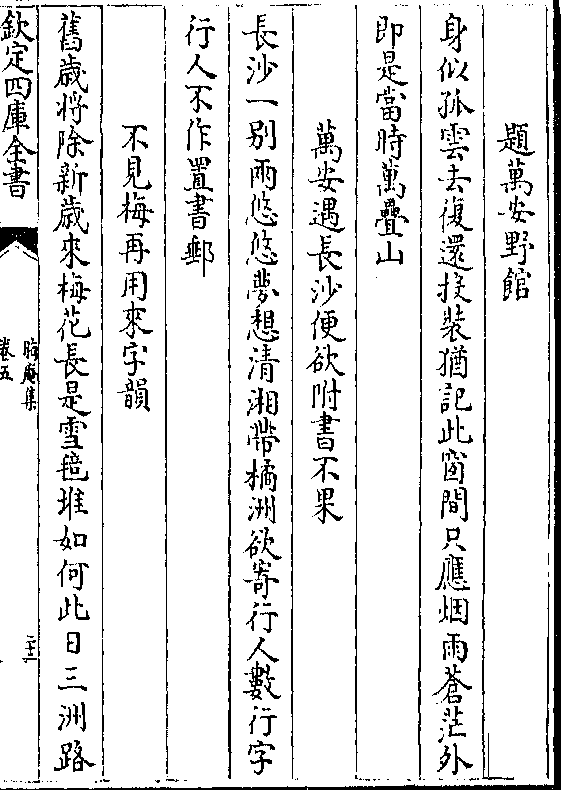 題萬安野館
身似孤雲去復還投裝猶記此窗間只應烟雨蒼茫外
即是當時萬疊山
萬安遇長沙便欲附書不果
長沙一别兩悠悠夢想清湘帶橘洲欲寄行人數行字
行人不作置書郵
不見梅再用來字韻
舊歳將除新歳來梅花長是雪毰堆如何此日三洲路
欽定四庫全書
晦庵集
卷五
二十三